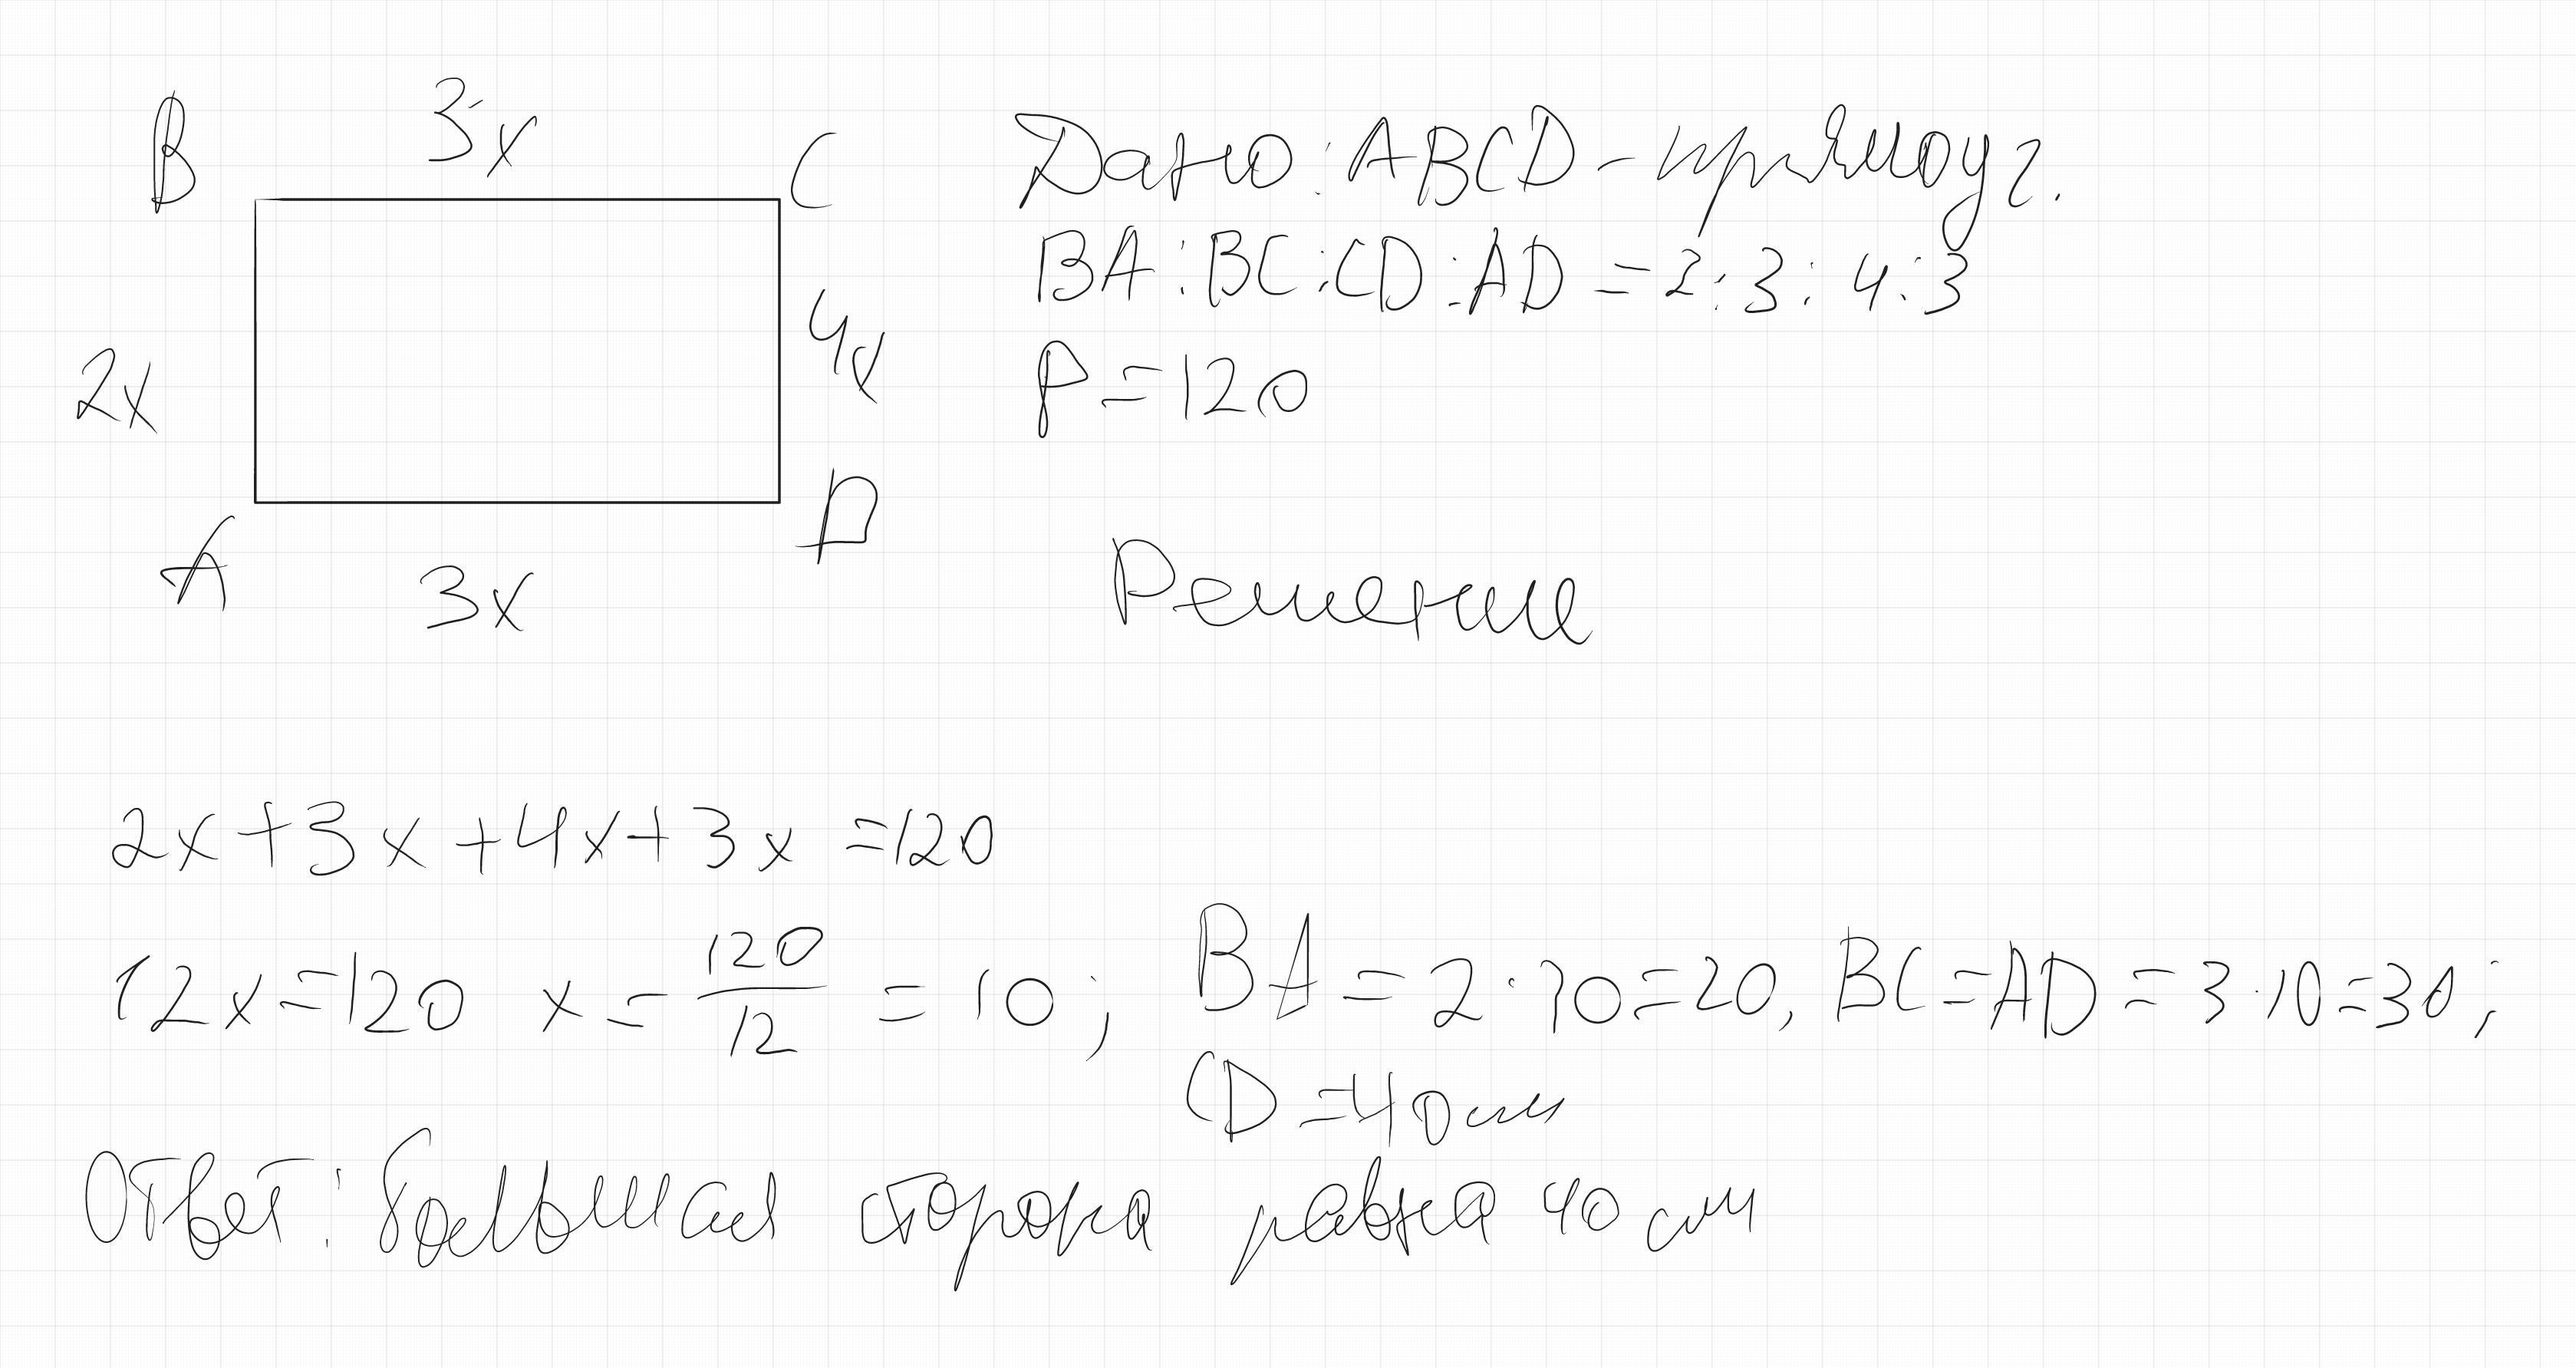 B 3x C
2x
4x
A 3x D
Дано: ABCD - прямоуг.
BA : BC : CD : AD = 2 : 3 : 4 : 3
P = 120
Решение
2x + 3x + 4x + 3x = 120
12x = 120 x = 120/12 = 10; BA = 2 · 10 = 20, BC = AD = 3 · 10 = 30;
CD = 40 см
Ответ: большая сторона равна 40 см